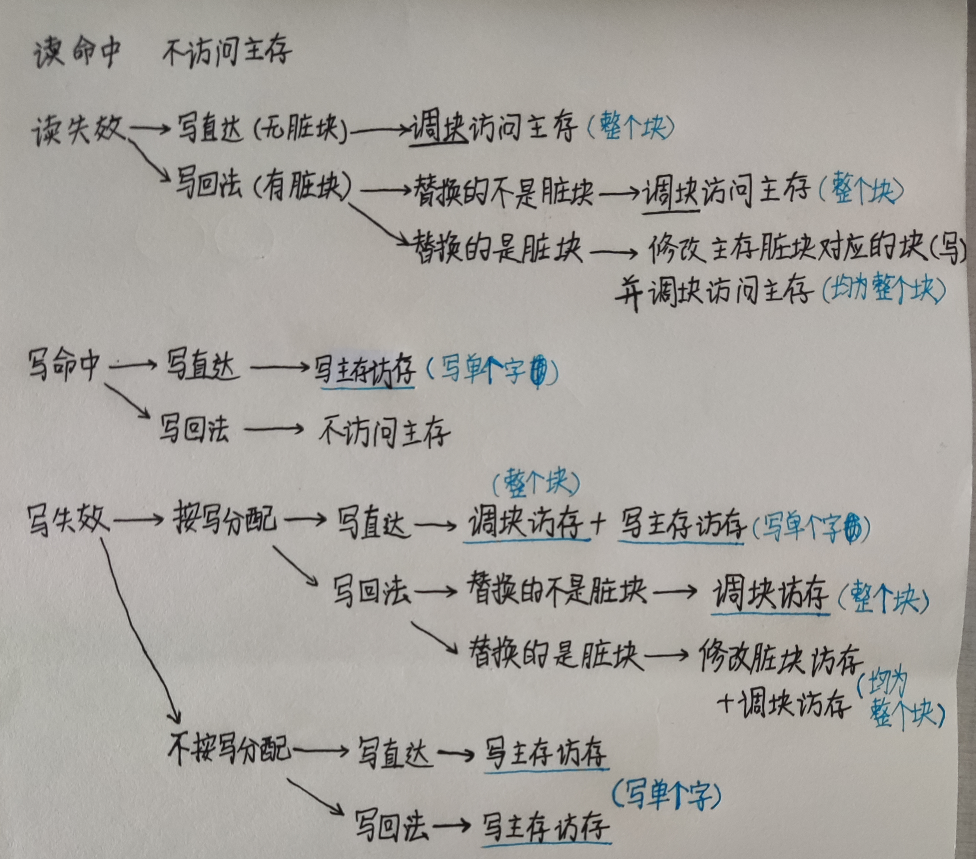 读命中 不访问主存
读失效 → 写直达(无脏块) → 调块访问主存(整个块)
→ 写回法(有脏块) → 替换的不是脏块 → 调块访问主存(整个块)
→ 替换的是脏块 → 修改主存脏块对应的块(写)
并调块访问主存(均为整个块)
写命中 → 写直达 → 写主存访存(写单个字)
→ 写回法 → 不访问主存
(整个块)
写失效 → 按写分配 → 写直达 → 调块访存 + 写主存访存(写单个字)
→ 写回法 → 替换的不是脏块 → 调块访存(整个块)
→ 替换的是脏块 → 修改脏块访存
+调块访存(均为
整个块)
→ 不按写分配 → 写直达 → 写主存访存
(写单个字)
→ 写回法 → 写主存访存